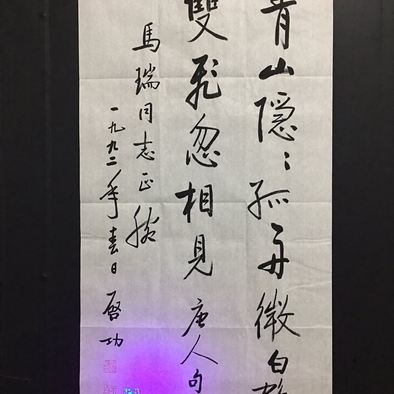 青山隐〻孤舟微白鹤
雙飛忽相見唐人句
馬瑞同志正腕
一九九二年春日啓功